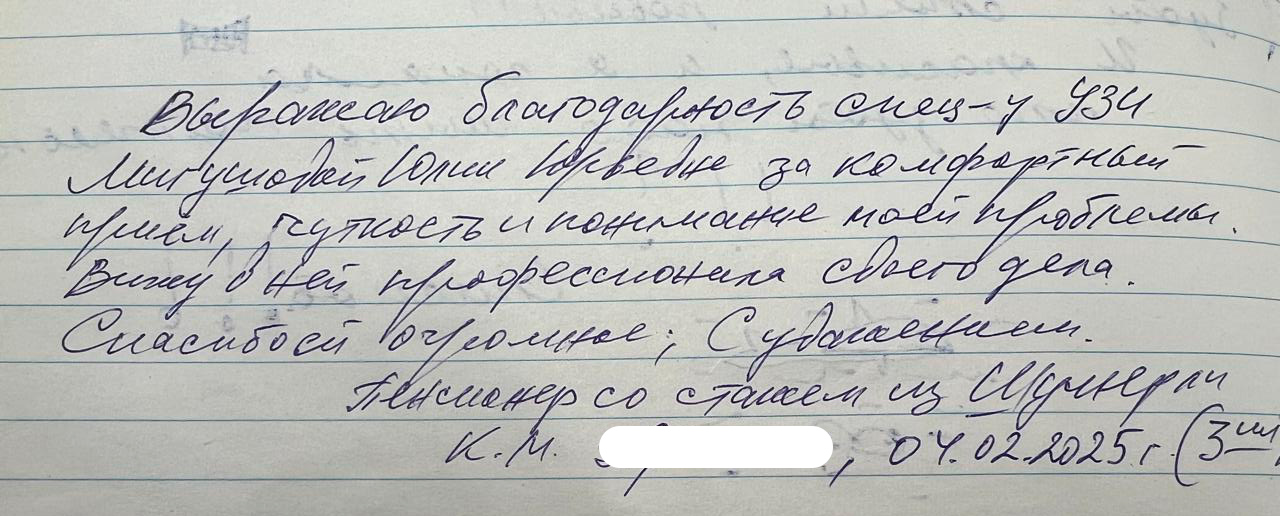 Выражаю благодарность спец-у УЗИ
Мигушовой Юлии Юрьевне за комфортный
приём, чуткость и понимание моей проблемы.
Вижу в ней профессионала своего дела.
Спасибо ей огромное; С уважением.
Пенсионер со стажем из Шумерли
К.М. , 04.02.2025 г. (3